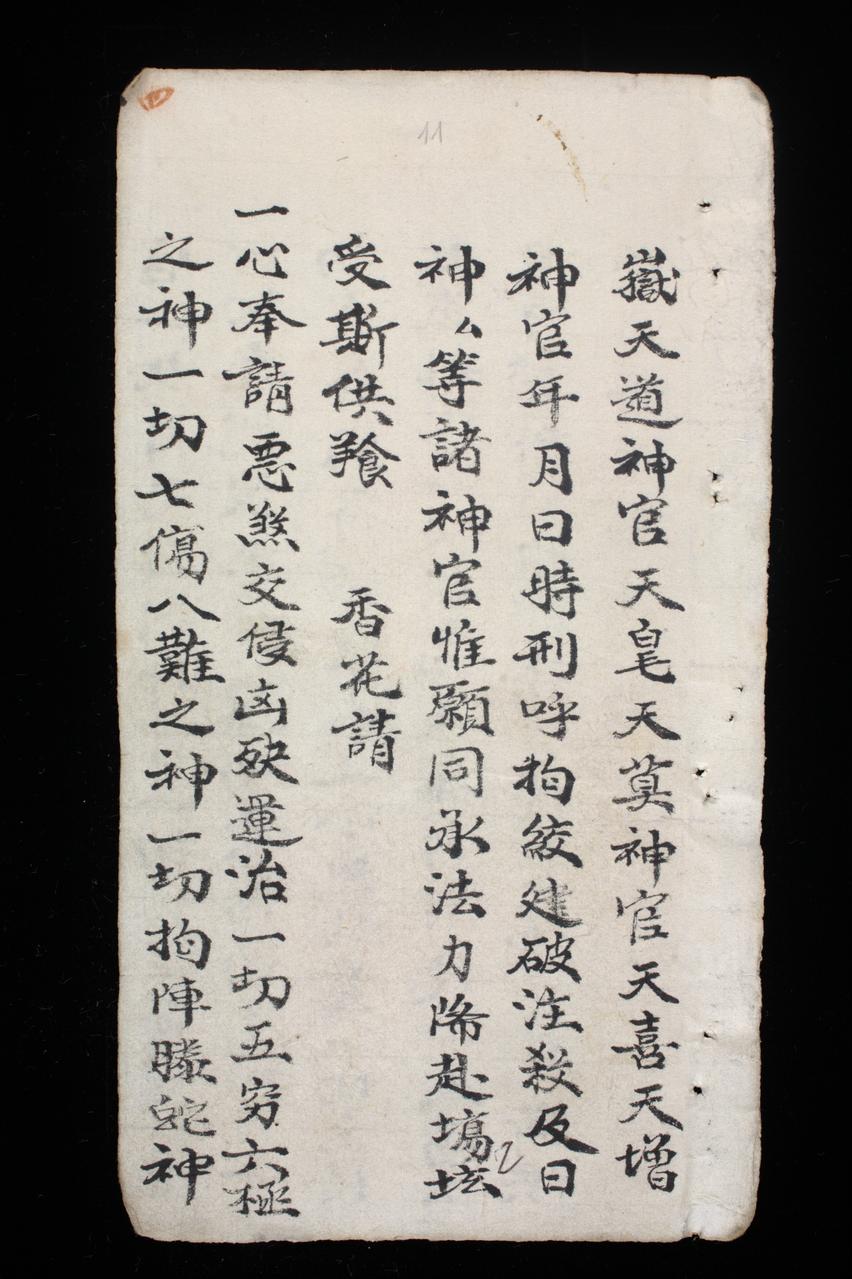 11
嶽天道神官天皂天莫神官天喜天增
神官年月日時刑呼拘絞建破注殺及日
神厶等諸神官惟願同承法力降赴塲坛
受斯供飱 香花請
一心奉請惡煞交侵凶殃運治一切五穷六極
之神一切七傷八難之神一切拘陣螣蛇神